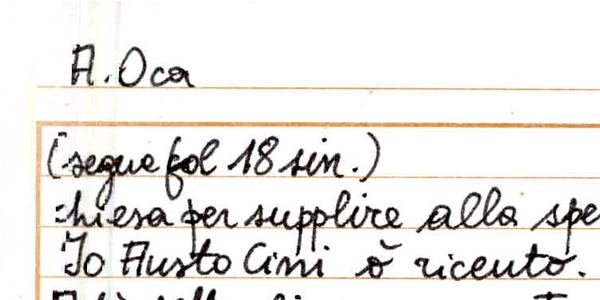 A. Oca
(segue fol 18 sin.)
:hiesa per supplire alla spe
Io Austo Cini ò ricento.